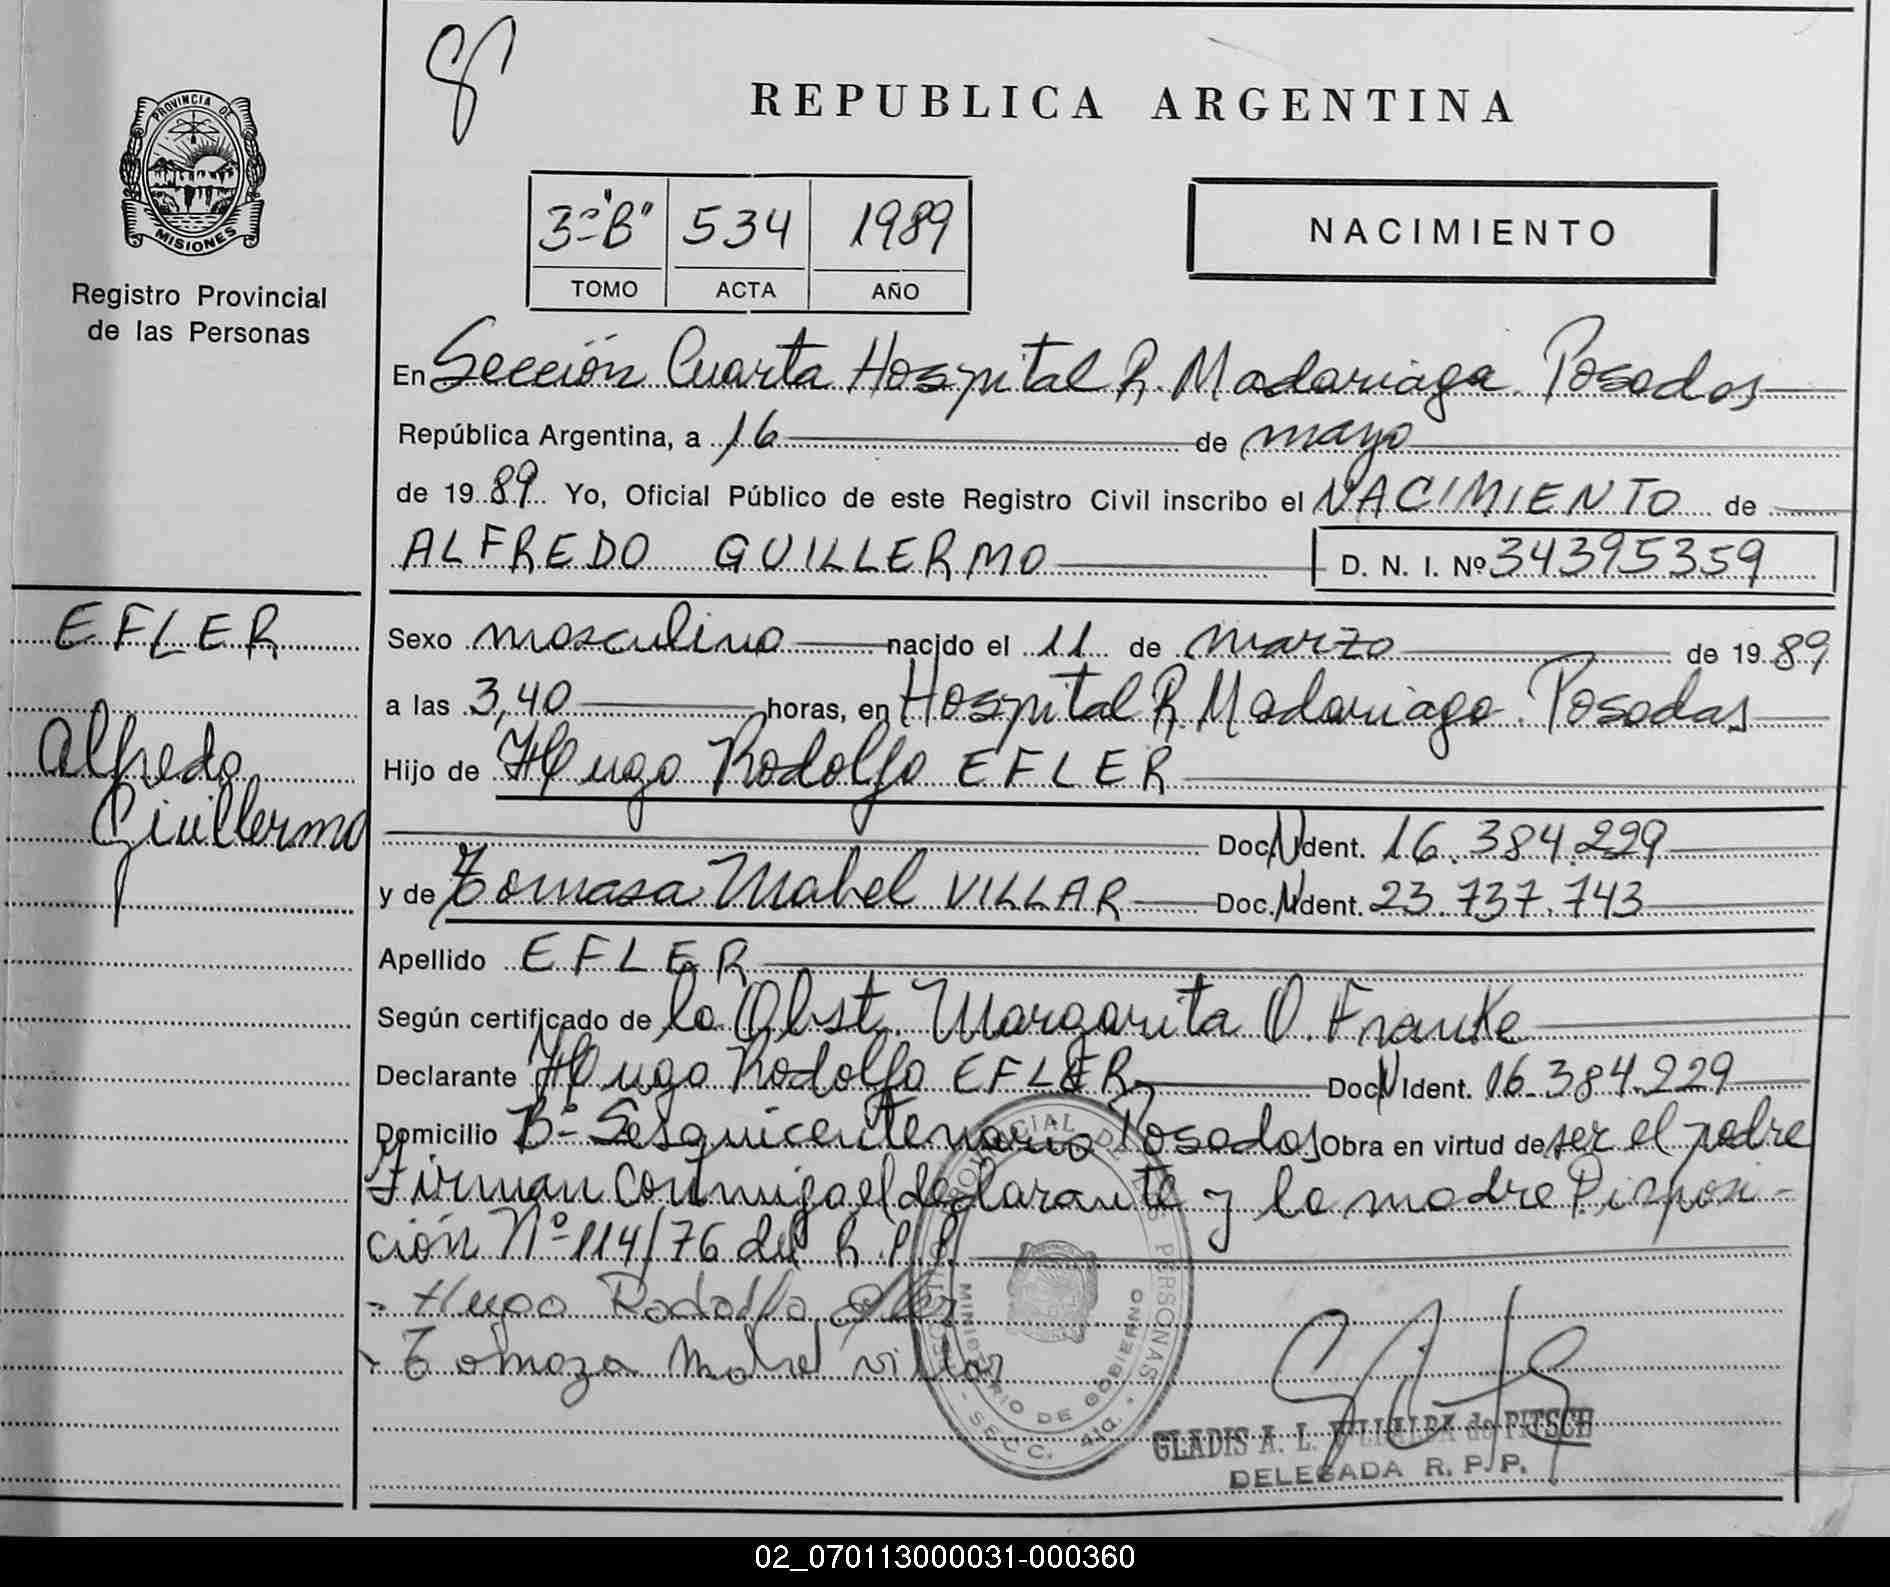 PROVINCIA DE
MISIONES
Registro Provincial
de las Personas
EFLER
Alfredo
Guillermo
REPUBLICA ARGENTINA
3º "B" 534 1989
TOMO ACTA AÑO
NACIMIENTO
En Sección Cuarta Hospital R. Madariaga. Posadas
República Argentina, a 16 de mayo
de 1989 Yo, Oficial Público de este Registro Civil inscribo el NACIMIENTO de
ALFREDO GUILLERMO D. N. I. Nº 34395359
Sexo masculino nacido el 11 de marzo de 1989
a las 3,40 horas, en Hospital R. Madariaga. Posadas
Hijo de Hugo Rodolfo EFLER
Doc. N Ident. 16.384.229
y de Tomasa Mabel VILLAR Doc. N Ident. 23.737.743
Apellido EFLER
Según certificado de la Obst. Margarita O. Franke
Declarante Hugo Rodolfo EFLER Doc. N Ident. 16.384.229
Domicilio Bº Sesquicentenario Posadas Obra en virtud de ser el padre
y Firman conmigo el declarante y la madre Disposi-
ción Nº 114/76 del R.P.P.
- Hugo Rodolfo Efler
- Tomaza Mabel villar
PROVINCIAL DE LAS PERSONAS
MINISTERIO DE GOBIERNO
SECC. 4ta.
GLADIS A. L. VILLALBA de PITSCH
DELEGADA R. P. P.
02_070113000031-000360